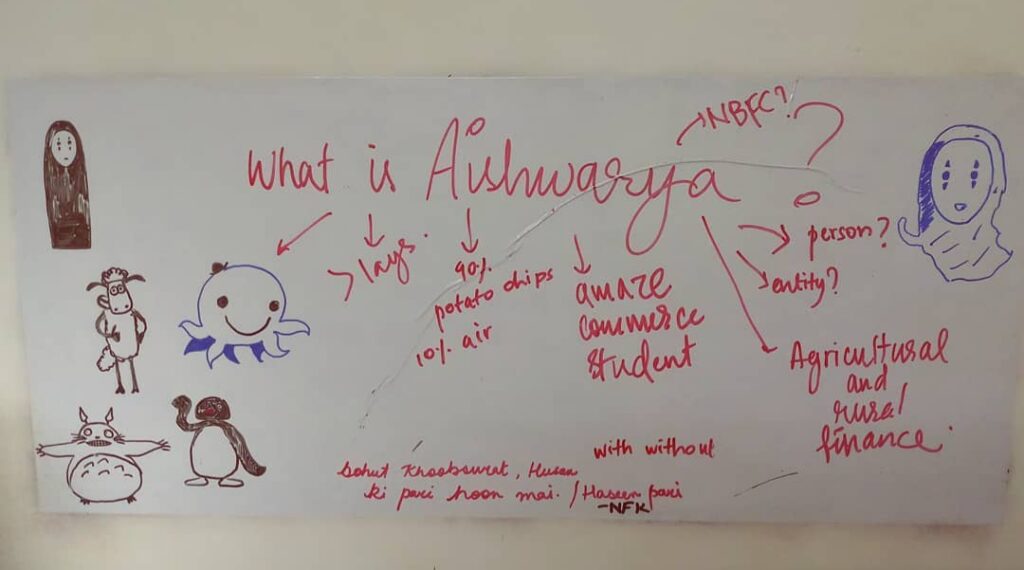 What is Aishwarya?
NBFC?
person?
entity?
> lays.
90%
potato chips
10% air
amaze
commerce
student
Agricultural
and
rural
finance.
with without
bohut Khoobsurat, Husan
ki pari hoon mai. / Haseen pari
-NFK